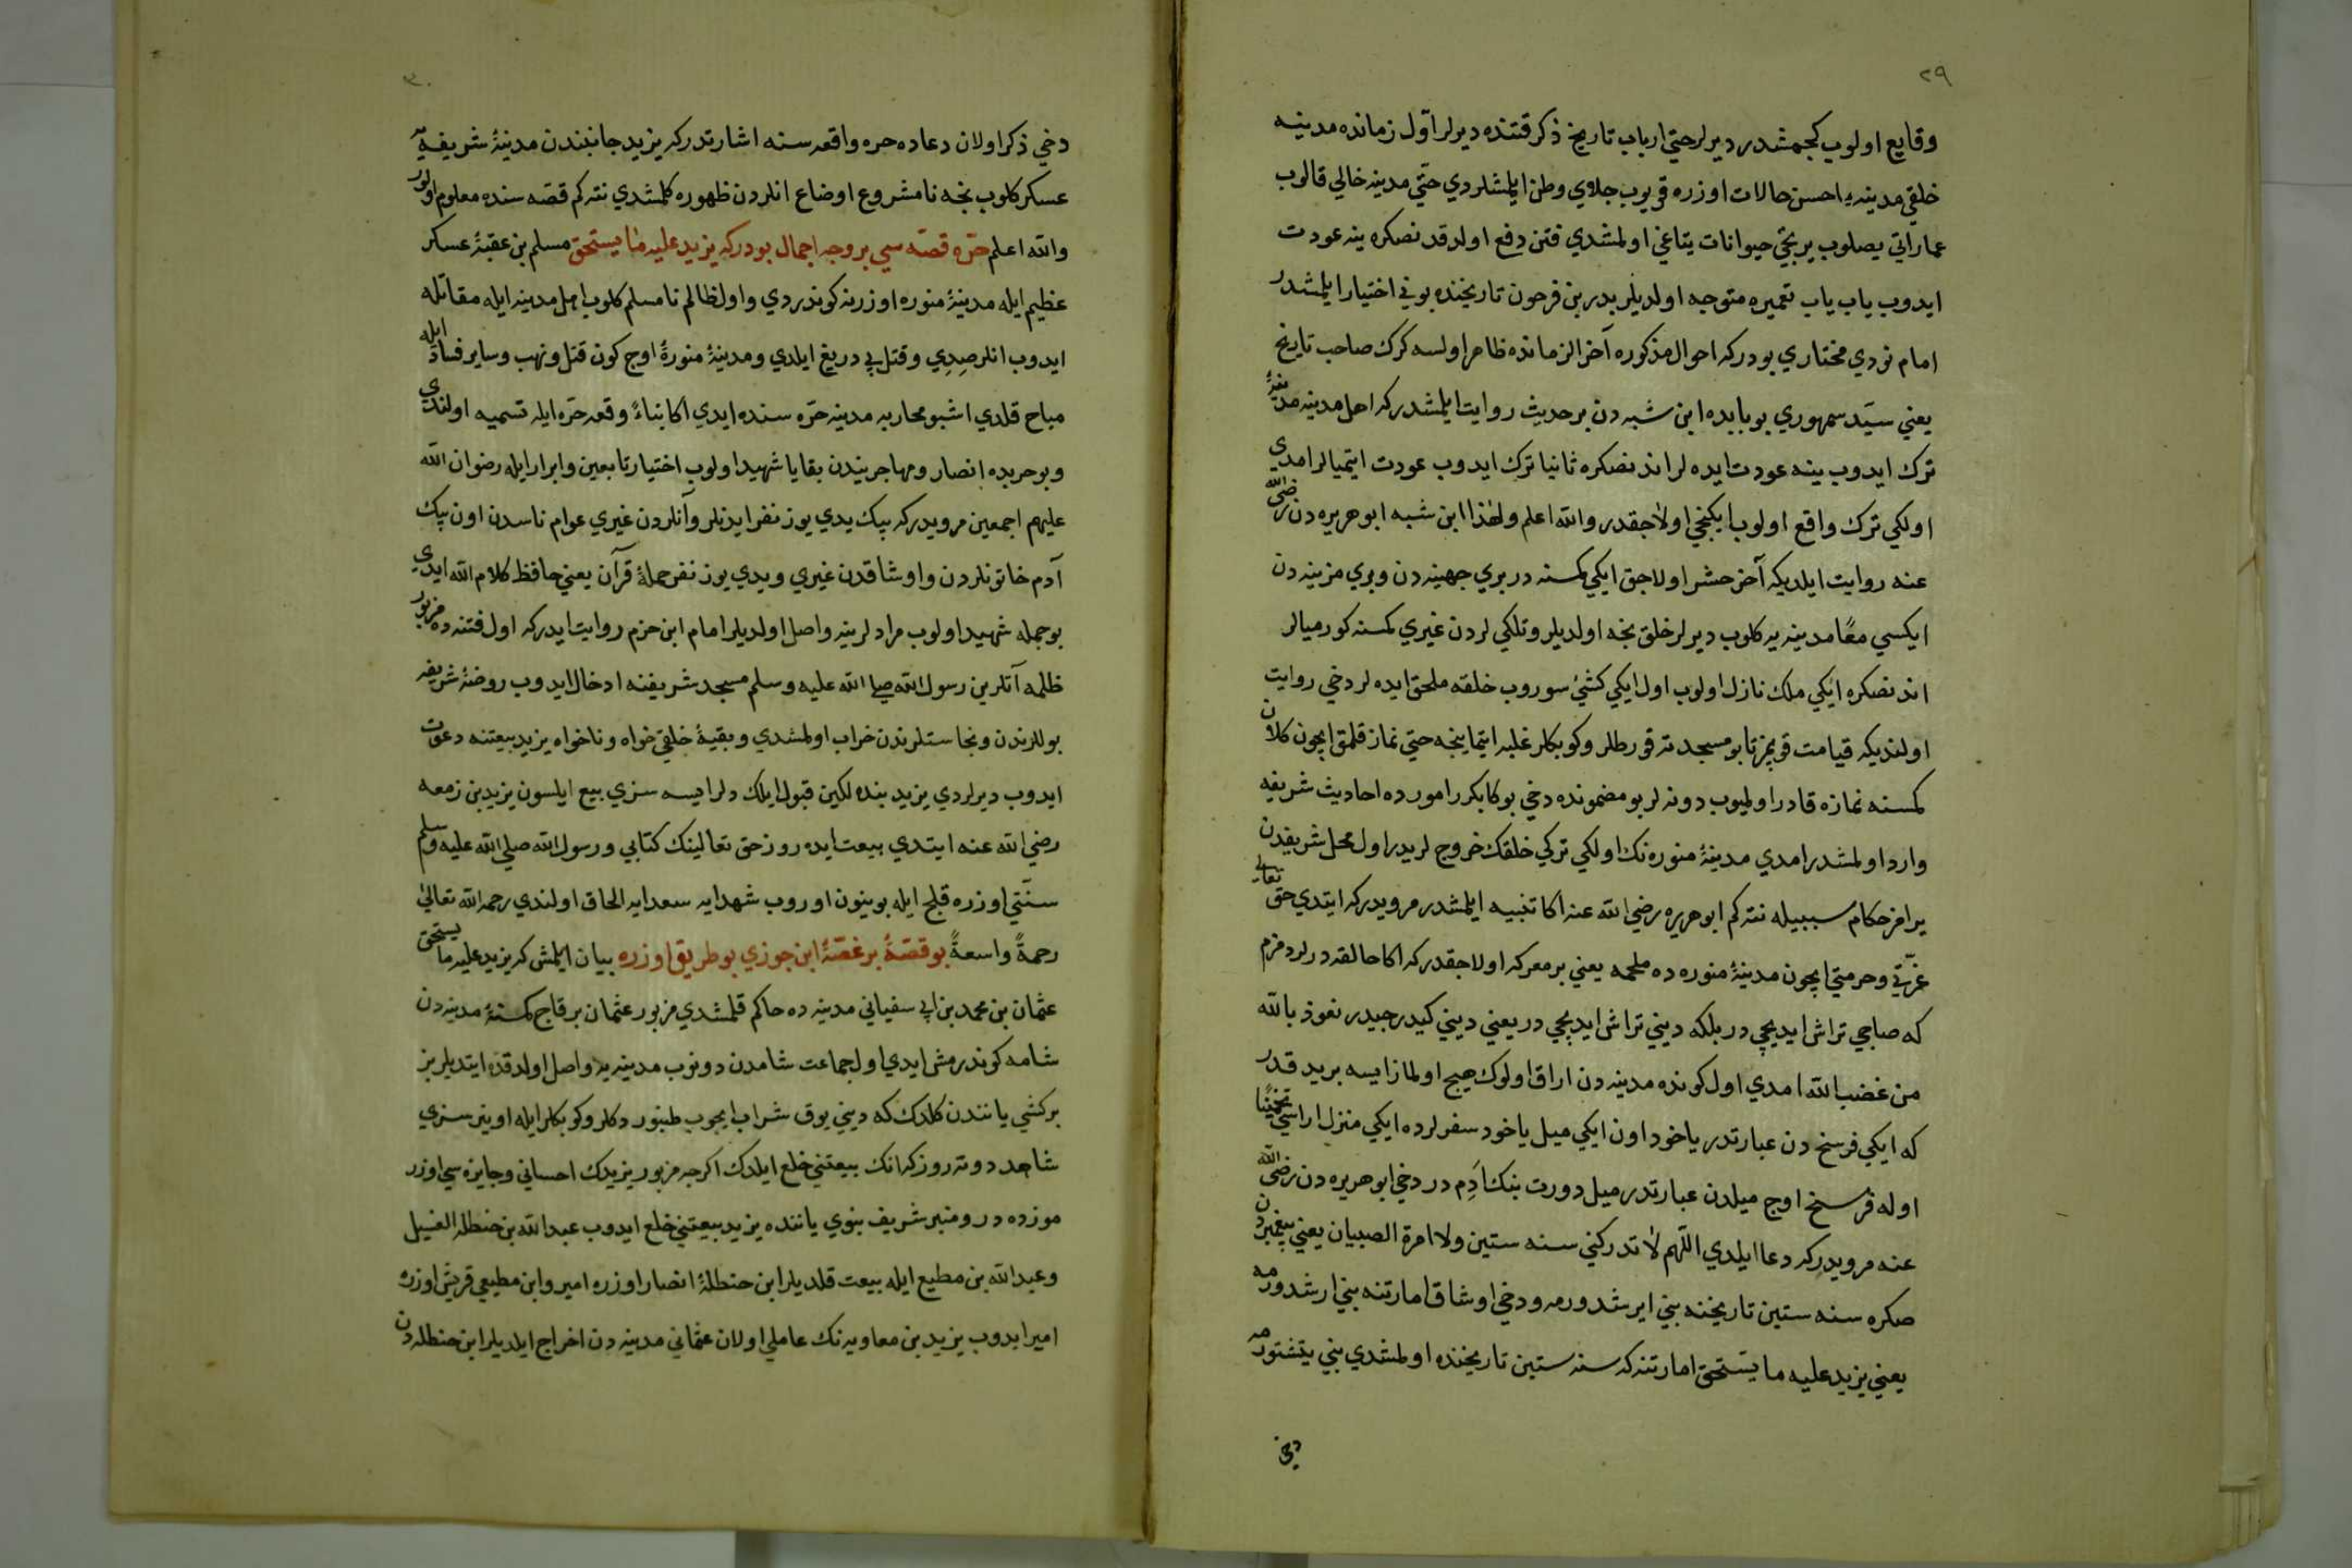 ٢٩
وقايع اولوب كجمشدر ديرلر حتي ارباب تاريخ ذكر فتنده ديرلر اوّل زمانده مدينه
خلقي مدينه يه احسن حالات اوزره قويوب جلاي وطن ايلمشلردي حتّي مدينه خالي قالوب
عماراتي يصلوب يربخچي حيوانات يتاغي اولمشدي فتن دفع اولدقد نصكره ينه عودت
ايدوب ياب ياب تعميره متوجه اولديلر بدر بن فرحون تاريخنده بوني اختيار ايلمشدر
امام نودي مختاري بودركه احوال مذكوره آخر الزمانده ظاهر اولسه كرك صاحب تاريخ
يعني سيّد سمهوري بو بابده ابن شبه دن بر حديث روايت ايلمشدركه اهل مدينه مدينۀ
ترك ايدوب ينه عودت ايده لر اندنصكره ثانيا ترك ايدوب عودت ايتميالر امدي
اولكي ترك واقع اولوب ايكنجي اولاجقدر والله اعلم ولهذا ابن شبه ابو هريره دن رضى الله
عنه روايت ايلديكه آخر حشر اولاجق ايكي كمسنه در بري جهينه دن وبري مزينه دن
ايكسي معًا مدينه يه كلوب ديرلر خلق نجه اولديلر وتلكي لردن غيري كمسنه كورميالر
اندنصكره ايكي ملك نازل اولوب اول ايكي كشئ سوروب خلقه ملحق ايده لر دخي روايت
اولنديكه قيامت قوپمز تا بو مسجدته قورطلر وكوبكلر غلبه ايتماينجه حتي نماز قلمق ايچون كلان
كمسنه نمازه قادر اوليوب دونه لر بو مضمونده دخي بوكا بكرر امورده احاديث شريفه
وارد اولمشدر امدي مدينۀ منوره نك اولكي تركي خلقك خروج لريدر اول محل شريفدن
يرامز حكام سببيله نته كم ابو هريره رضي الله عنه اكا تنبيه ايلمشدر مرويدركه ايتدي حق تعالى
عزّتي وحرمتي ايچون مدينۀ منوره ده ملحمه يعني بر معركه اولاجقدركه اكا حالقه درلر دمزم
كه صاچي تراش ايديجي در بلكه ديني تراش ايديجي در يعني ديني كيدرجيدر نعوذ بالله
من غضب الله امدي اول كونده مدينه دن اراق اولوك هيچ اولمازايسه بريد قدر
كه ايكي فرسخ دن عبارتدر ياخود اون ايكي ميل ياخود سفرلرده ايكي منزل اراسي تخمينًا
اوله فرسخ اوچ ميلدن عبارتدر ميل دورت بنك اَدِم در دخي ابو هريره دن رضى الله
عنه مرويدركه دعا ايلدي اللّهم لا تدركني سنه ستين ولا امرة الصبيان يعني پيغمبردن
صكره سنه ستين تاريخنه بني ايرشدورمه ودخي اوشاق امارتنه بني ارشدورمه
يعني يزيد عليه ما يستحق امارتنه كه سنه ستين تاريخنده اولمشدي بني يتشتورمه
دخي
٣٠
دخي ذكر اولان دعاده حره واقعه سنه اشارتدركه يزيد جانبندن مدينۀ شريفه يه
عسكر كلوب نجه نامشروع اوضاع انلردن ظهوره كلمشدي نته كم قصّه سنده معلوم اولور
والله اعلم حرّه قصّه سي بر وجه اجمال بودركه يزيد عليه ما يستحق مسلم بن عقبۀ عسكر
عظيم ايله مدينۀ منوره اوزرنه كوندردي واول ظالم نامسلم كلوب اهل مدينه ايله مقاتله
ايدوب انلر صِدِي وقتل بي دريغ ايلدي ومدينۀ منورۀ اوچ كون قتل ونهب وساير فساد ايله
مباح قلدي اشبو محاربه مدينه حرّه سنده ايدي اكا بناءً وقعه حرّه ايله تسميه اولندي
وبو حربده انصار ومهاجريندن بقايا شهيد اولوب اختيار تابعين وابرار ايله رضوان الله
عليهم اجمعين مرويدركه بيك يدي يوز نفر ايديلر وآنلردن غيري عوام ناسدن اون بيك
آدم خاتونلردن واوشاقدن غيري ويدي يوز نفر حملۀ قرآن يعني حافظ كلام الله ايدي
بو جمله شهيد اولوب مرادلرينه واصل اولديلر امام ابن حزم روايت ايدركه اول فتنه ده مزبور
ظلمه آتلرين رسول الله صلى الله عليه وسلم مسجد شريفنه ادخال ايدوب روضۀ شريفه
بوللرندن ونجاستلرندن خراب اولمشدي وبقيۀ خلقي خواه وناخواه يزيد بيعتنه دعوت
ايدوب ديرلردي يزيد بنده لكين قبول ايلك دلرايسه سزي بيع ايلسون يزيد بن زمعه
رضي الله عنه ايتدي بيعت ايده روز حق تعالينك كتابي ورسول الله صلي الله عليه وسلم
سنّتي اوزره قلج ايله بوينون اوروب شهدايه سعدايه الحاق اولندي رحمه الله تعالى
رحمةً واسعةً بو قصّۀ پر غصّۀ ابن جوزي بو طريق اوزره بيان ايلمش كه يزيد عليه ما يستحق
عثمان بن محمد بن ابي سفياني مدينه ده حاكم قلمشدي مزبور عثمان بر قاچ كمسنۀ مدينه دن
شامه كوندرمش ايدي اول جماعت شامدن دونوب مدينه يه واصل اولدقده ايتديلر بز
بر كشي ياننندن كلدك كه ديني يوق شراب ايچوب طنبور دكلر وكوبكلر ايله اوينر سزي
شاهد دوته روزكه انك بيعتني خلع ايلدك اكرچه مزبور يزيدك احساني وجايزه سي اوزر
موزده در ومنبر شريف نبوي ياننده يزيد بيعتني خلع ايدوب عبد الله بن حنظله الغسيل
وعبد الله بن مطيع ايله بيعت قلديلر ابن حنظلۀ انصار اوزره امير وابن مطيعي قريش اوزره
امير ايدوب يزيد بن معاويه نك عاملي اولان عثماني مدينه دن اخراج ايلديلر ابن حنظله دن